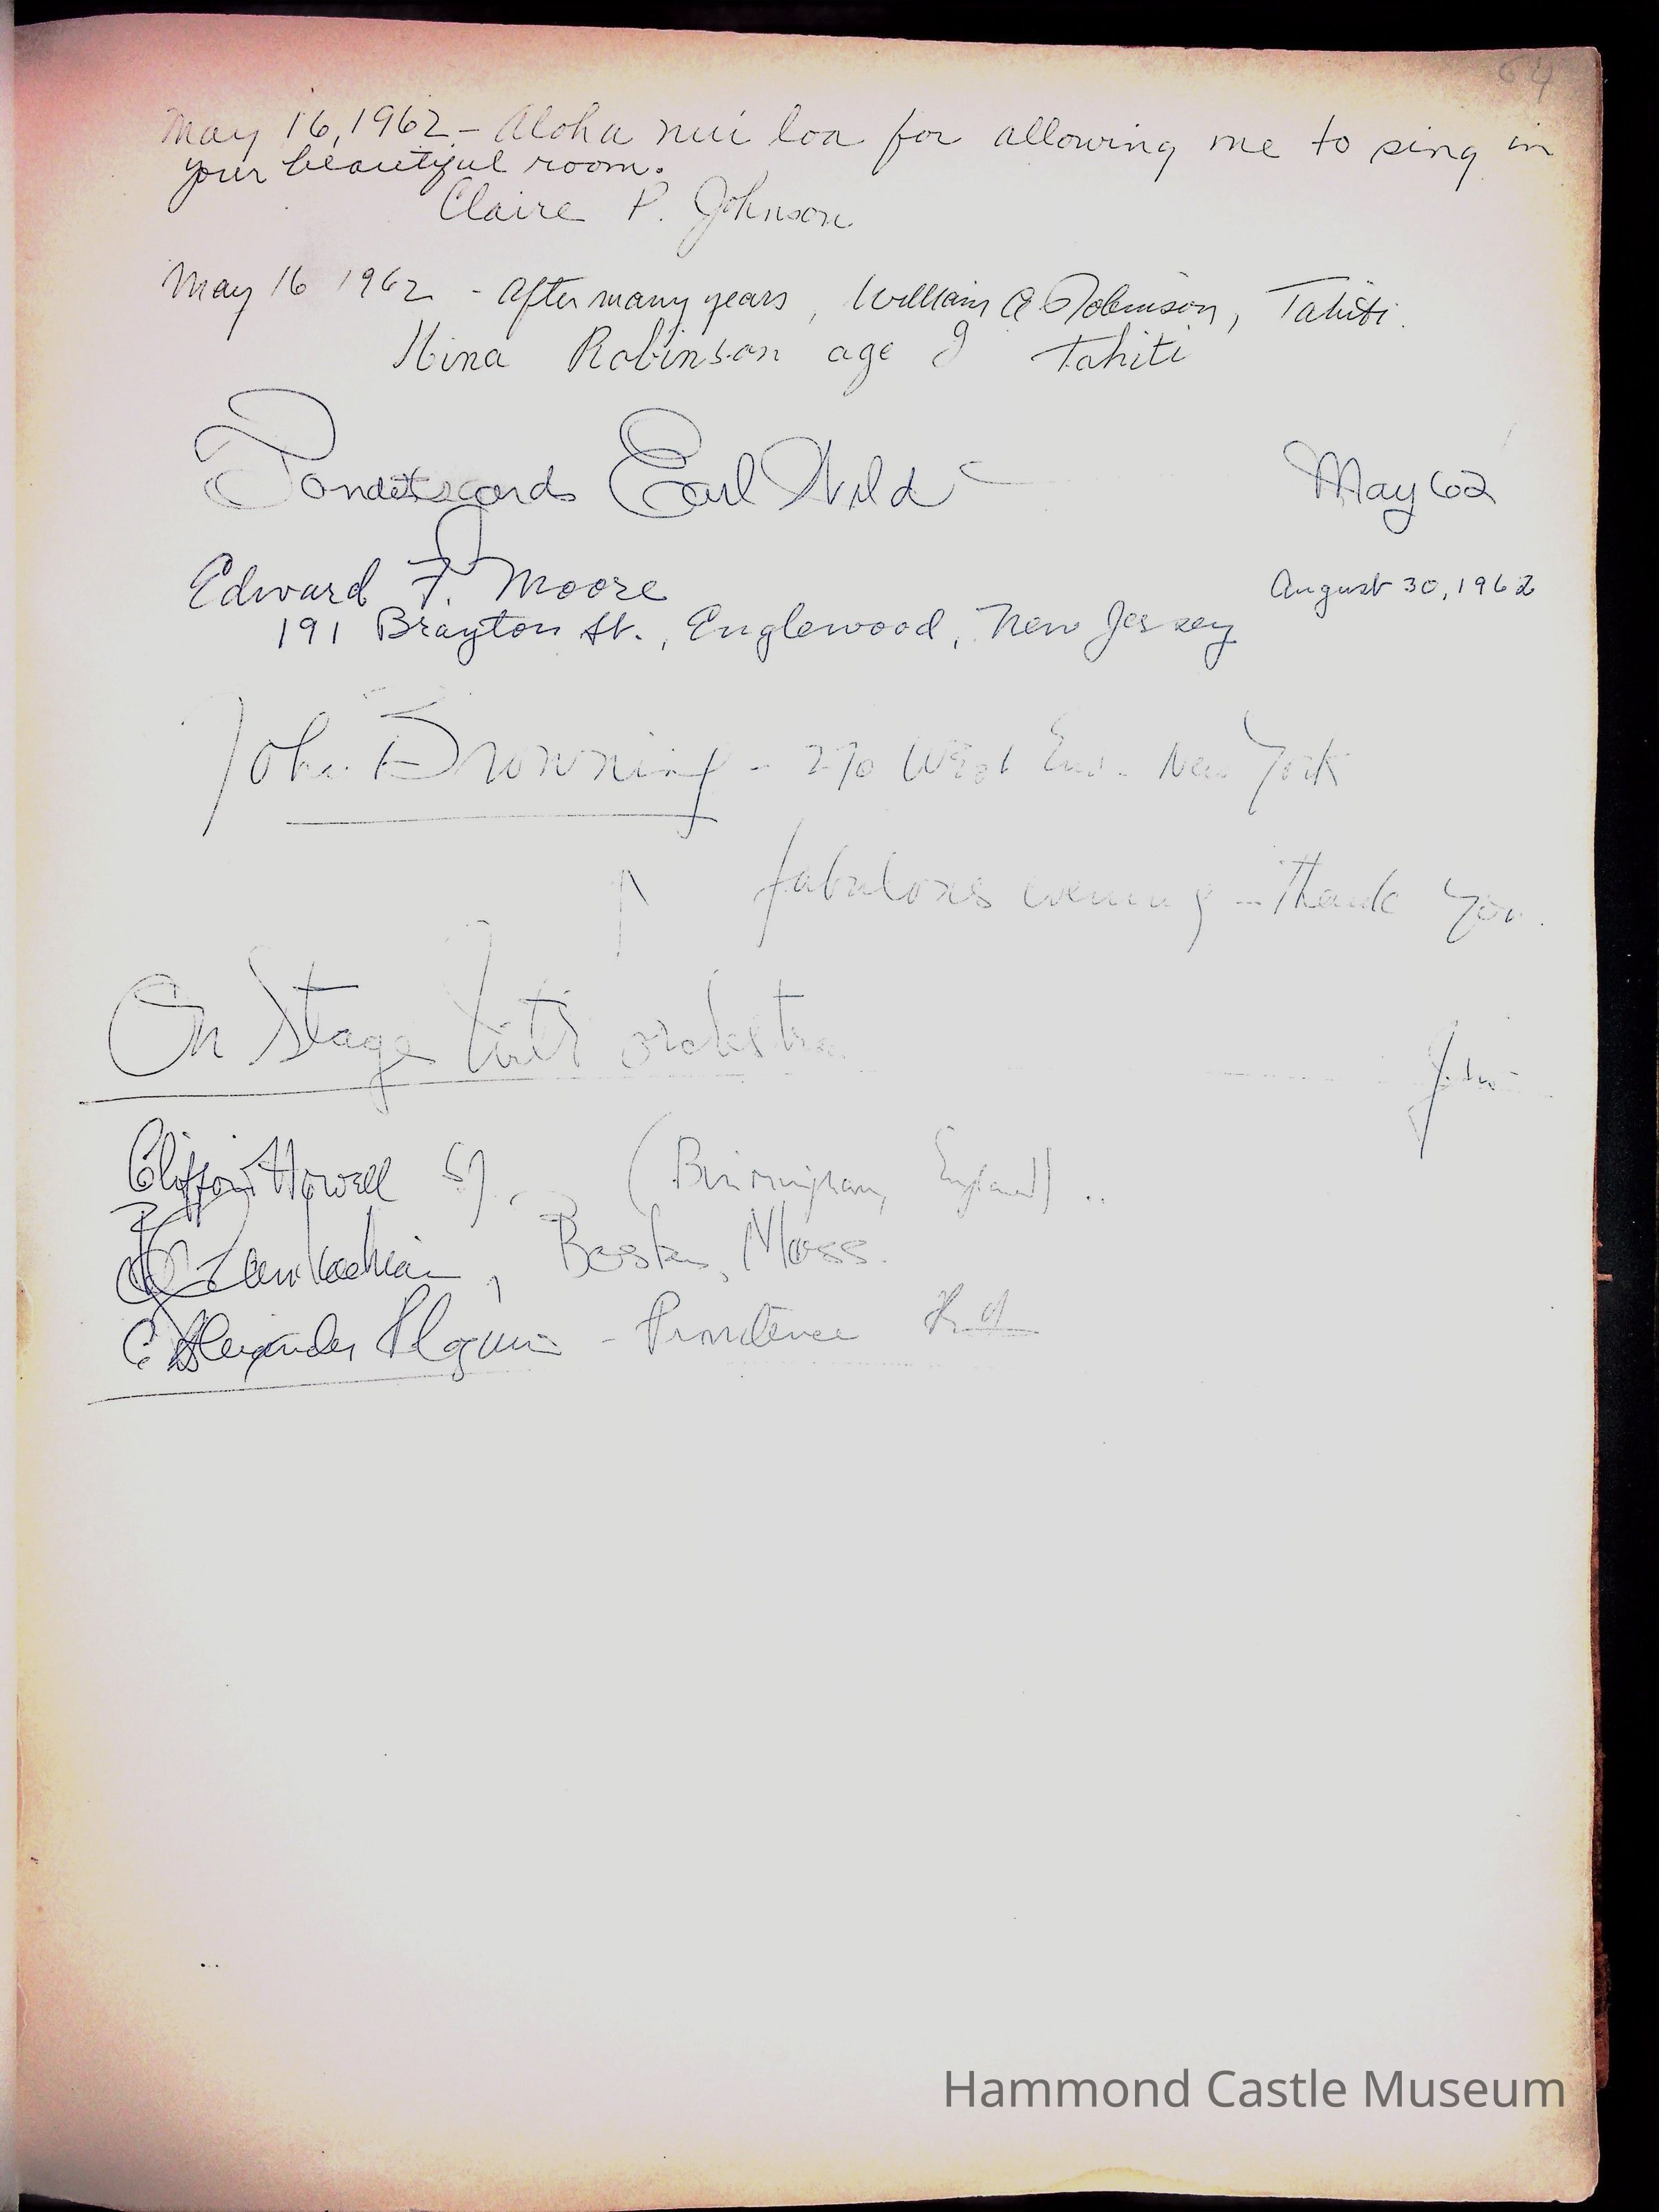 64
May 16, 1962 - Aloha nui loa for allowing me to sing in
your beautiful room.
Claire P. Johnson
May 16 1962 - After many years, William A Robinson, Tahiti.
Hina Robinson age 9 Tahiti
Fondest regards Earl Wild May 62
Edward F. Moore August 30, 1962
191 Brayton St., Englewood, New Jersey
John Browning - 270 West End - New York
fabulous evening - Thank You.
On Stage with orchestra
John
Clifford Howell (Birmingham, England)
Boston, Mass.
C Alexander Peloquin - Providence R.I.
Hammond Castle Museum